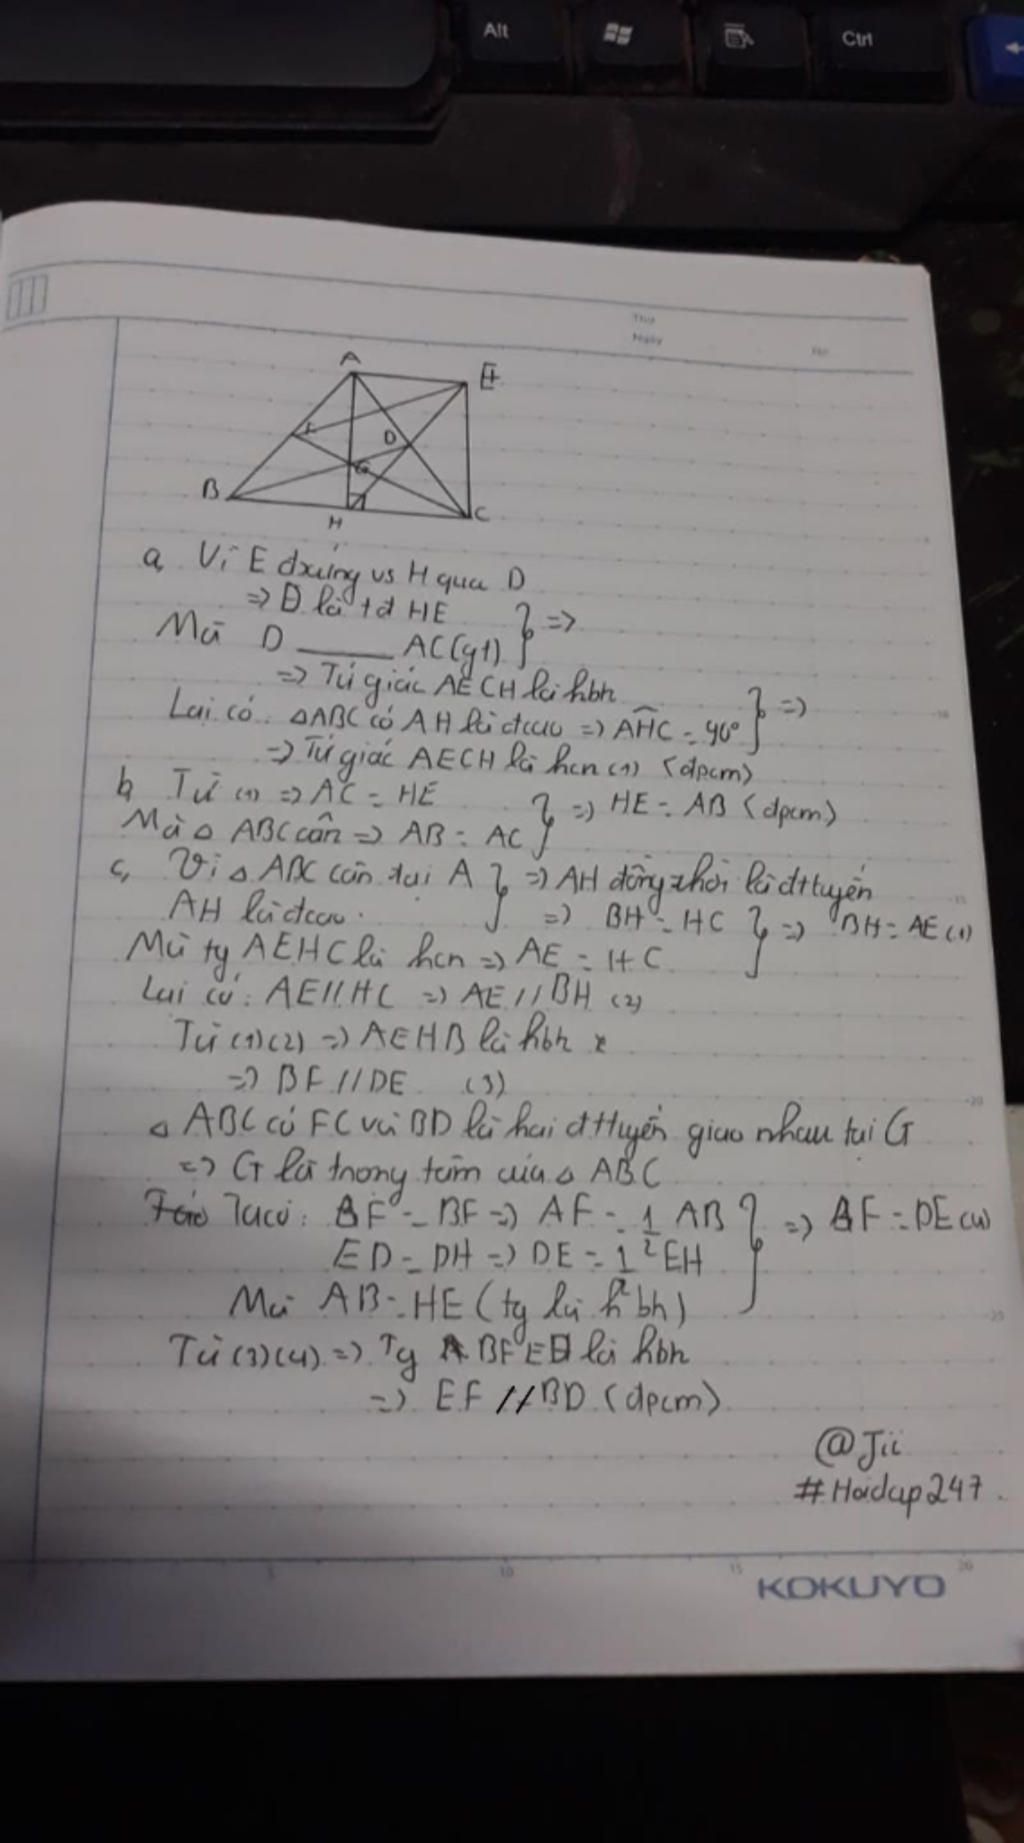 Alt
Ctrl
Thứ
Ngày
No.
A
E
F
D
G
B
H
C
a, Vì E đxứng vs H qua D
=> D là tđ HE
Mà D ____ AC (gt) } =>
=> Tứ giác AECH là hbh
Lại có: △ABC có AH là đcao => AHC = 90° } =>
=> Tứ giác AECH là hcn (1) (đpcm)
b, Từ (1) => AC = HE
Mà △ ABC cân => AB = AC } => HE = AB (đpcm)
c, Vì △ ABC cân tại A } => AH đồng thời là đttuyến
AH là đcao. => BH = HC } => BH = AE (1)
Mà tg AEHC là hcn => AE = HC
Lại có: AE // HC => AE // BH (2)
Từ (1)(2) => AEHB là hbh
=> BF // DE (3)
△ ABC có FC và BD là hai đttuyến giao nhau tại G
=> G là trọng tâm của △ ABC
Ta có: AF = BF => AF = 1/2 AB } => BF = DE (4)
ED = DH => DE = 1/2 EH
Mà AB = HE (tg là hbh)
Từ (3)(4) => Tg BFED là hbh
=> EF // BD (đpcm)
@Jii
#Hoidap247.
5
10
15
20
KOKUYO